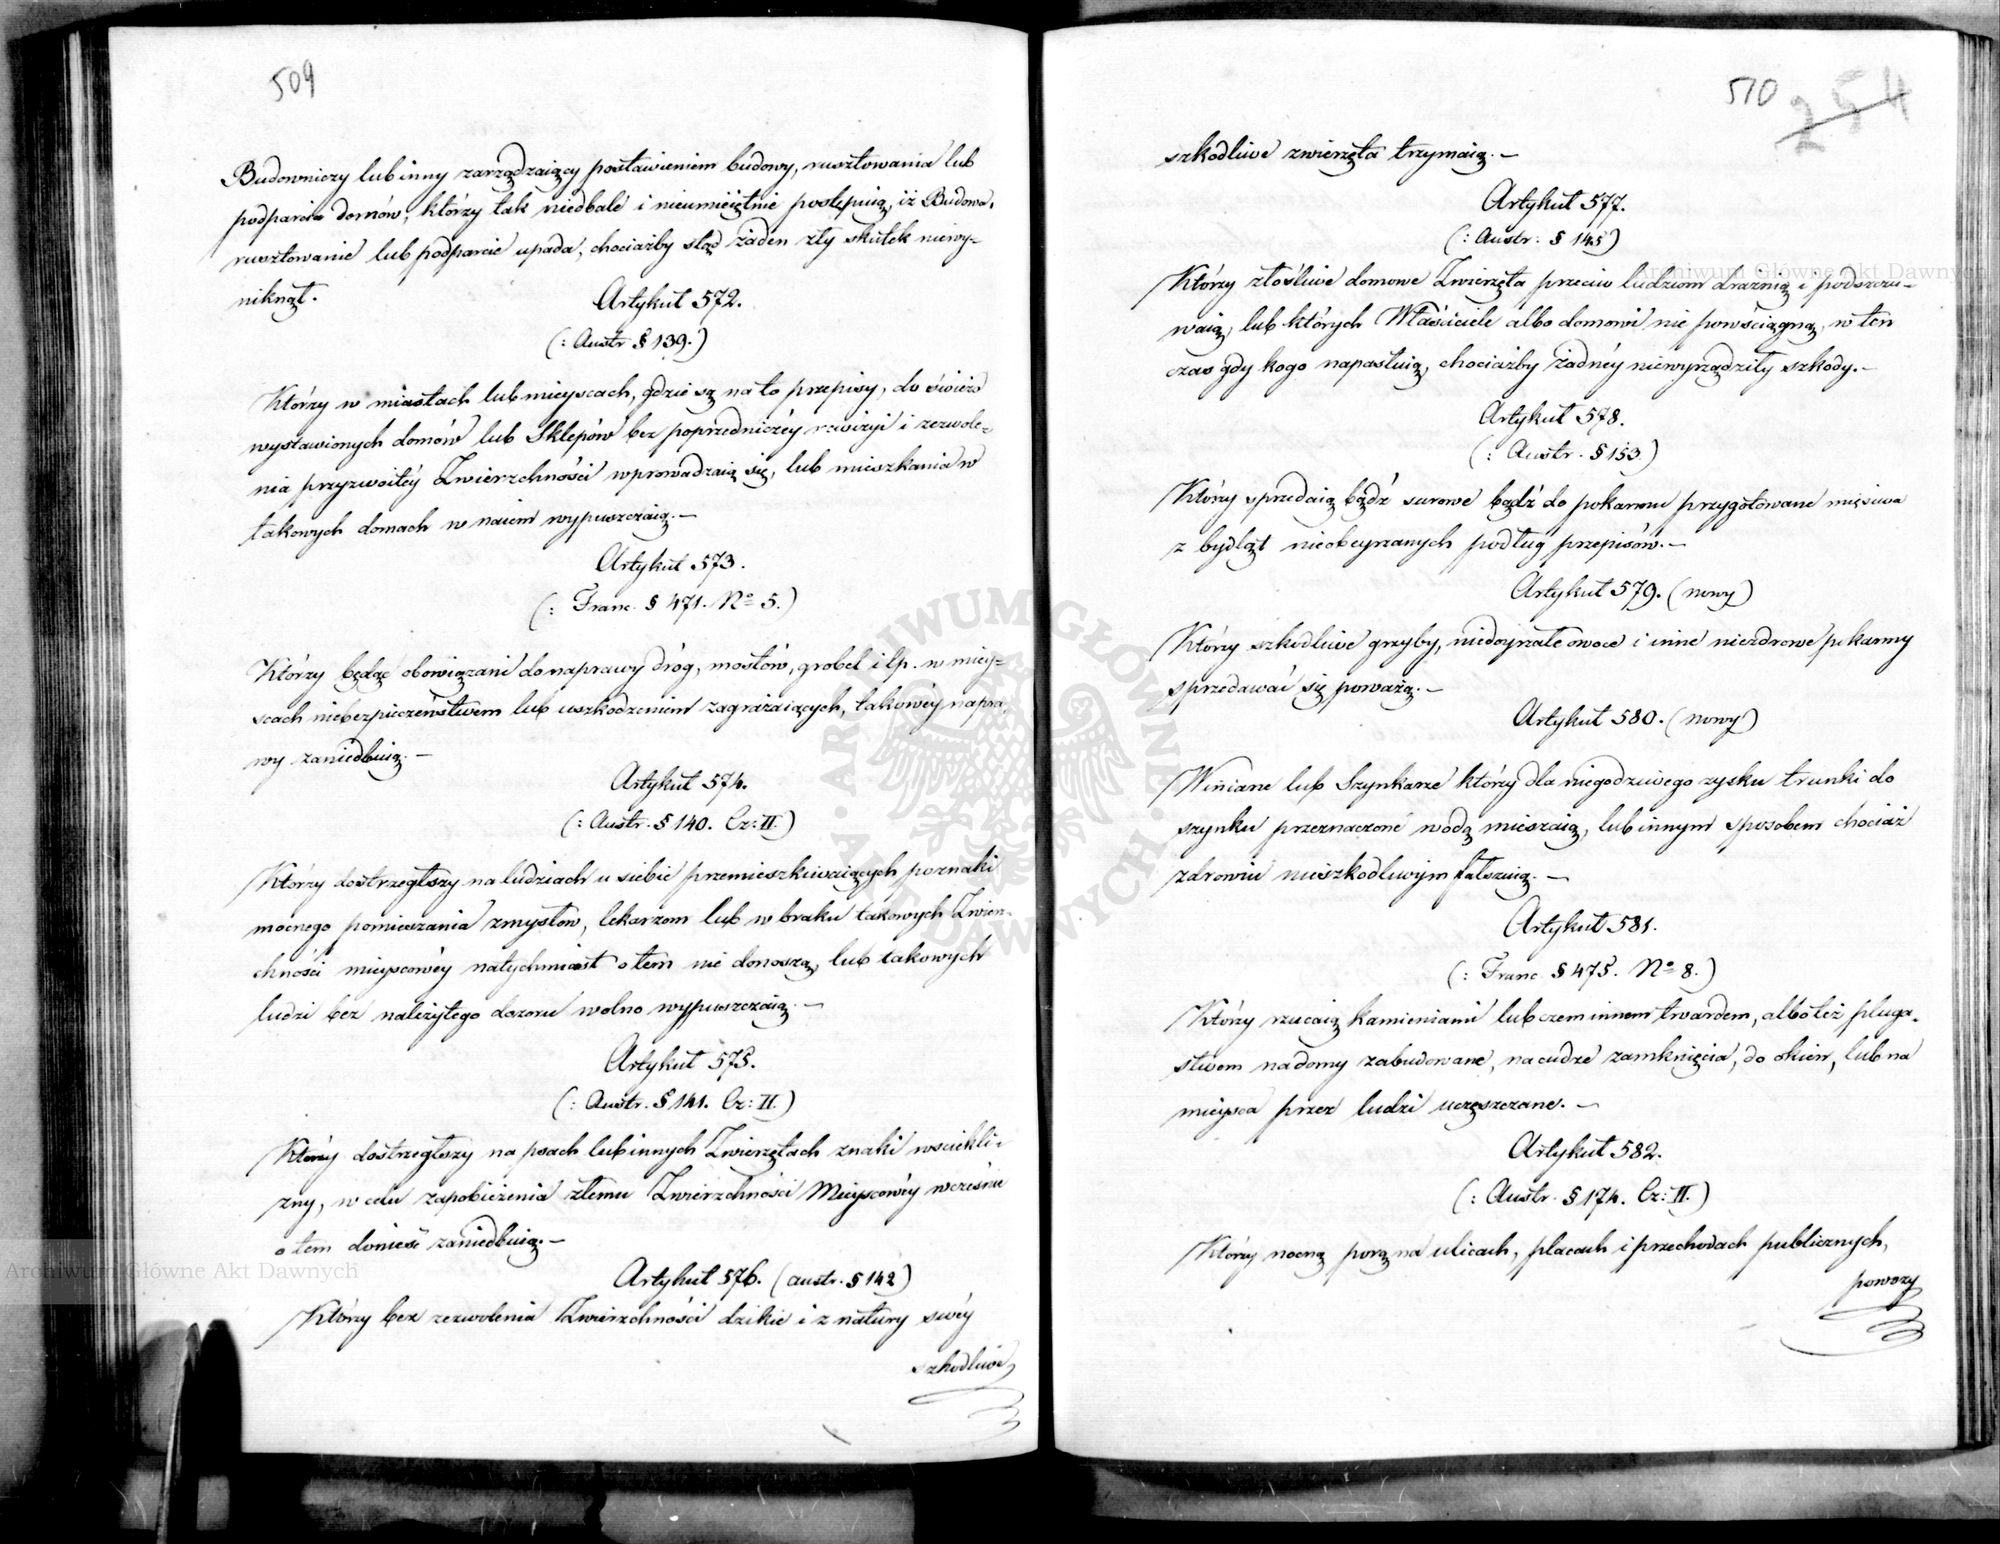 509
Budowniczy lub inny zarządzaiący postawieniem budowy, rusztowania lub
podparcia domów, którzy tak niedbale i nieumieiętnie postępuią, iż Budowa,
rusztowanie lub podparcie upada, chociażby stąd żaden zły skutek niewy=
niknął.
Artykuł 572.
(: Austr § 139.)
Którzy w miastach lub mieyscach, gdzie są na to przepisy, do świeżo
wystawionych domów lub Sklepów bez poprzedniczéy rewizyi i zezwole=
nia przyzwoitéy Zwierzchności wprowadzaią się, lub mieszkania w
takowych domach w naiem wypuszczaią. —
Artykuł 573.
(: Franc. § 471. No 5.)
Którzy będąc obowiązani do naprawy dróg, mostów, grobel itp. w miey=
scach niebezpieczeństwem lub uszkodzeniem zagrażaiących, takowéy napra=
wy zaniedbuią. —
Artykuł 574.
(: Austr. § 140. Cz: II.)
Którzy dostrzegłszy na ludziach u siebie przemieszkiwaiących poznaki
mocnego pomieszania zmysłów, lekarzom lub w braku takowych Zwierz=
chności mieyscowéy natychmiast o tem nie donoszą, lub takowych
ludzi bez należytego dozoru wolno wypuszczaią. —
Artykuł 575.
(: Austr. § 141. Cz: II.)
Którzy dostrzegłszy na psach lub innych Zwierzętach znaki wściekli=
zny, w celu zapobieżenia złemu Zwierzchności Mieyscowéy wcześnie
o tem donieść zaniedbuią. —
Artykuł 576. (austr. § 142)
Którzy bez zezwolenia Zwierzchności dzikie i z natury swéy
szkodliwe
510
254
szkodliwe zwierzęta trzymaią. —
Artykuł 577.
(: Austr: § 145)
Którzy złośliwe domowe Zwierzęta przeciw ludziom drażnią i podszczu=
waią, lub których Właściciele albo domowi nie powściągną, w ten
czas gdy kogo napastuią, chociażby żadnéy niewyrządziły szkody. —
Artykuł 578.
(: Austr. § 153)
Którzy sprzedaią bądź surowe bądź do pokarmu przygotowane mięsiwa
z bydląt nieobeyrzanych podług przepisów. —
Artykuł 579. (nowy)
Którzy szkodliwe grzyby, niedoyrzałe owoce i inne niezdrowe pokarmy
sprzedawać się poważą. —
Artykuł 580. (nowy)
Winiarze lub Szynkarze którzy dla niegodziwego zysku trunki do
szynku przeznaczoné wodą mieszaią, lub innym sposobem chociaż
zdrowiu nieszkodliwym fałszuią. —
Artykuł 581.
(: Franc. § 475. No 8.)
Którzy rzucaią kamieniami lub czem innem twardem, albo też pluga=
stwem na domy zabudowane, na cudze zamknięcia, do okien, lub na
mieysca przez ludzi uczęszczane. —
Artykuł 582.
(: Austr. § 174. Cz: II.)
Którzy nocną porą na ulicach, placach i przechodach publicznych,
powozy
ARCHIWUM GŁÓWNE AKT DAWNYCH
Archiwum Główne Akt Dawnych
Archiwum Główne Akt Dawnych